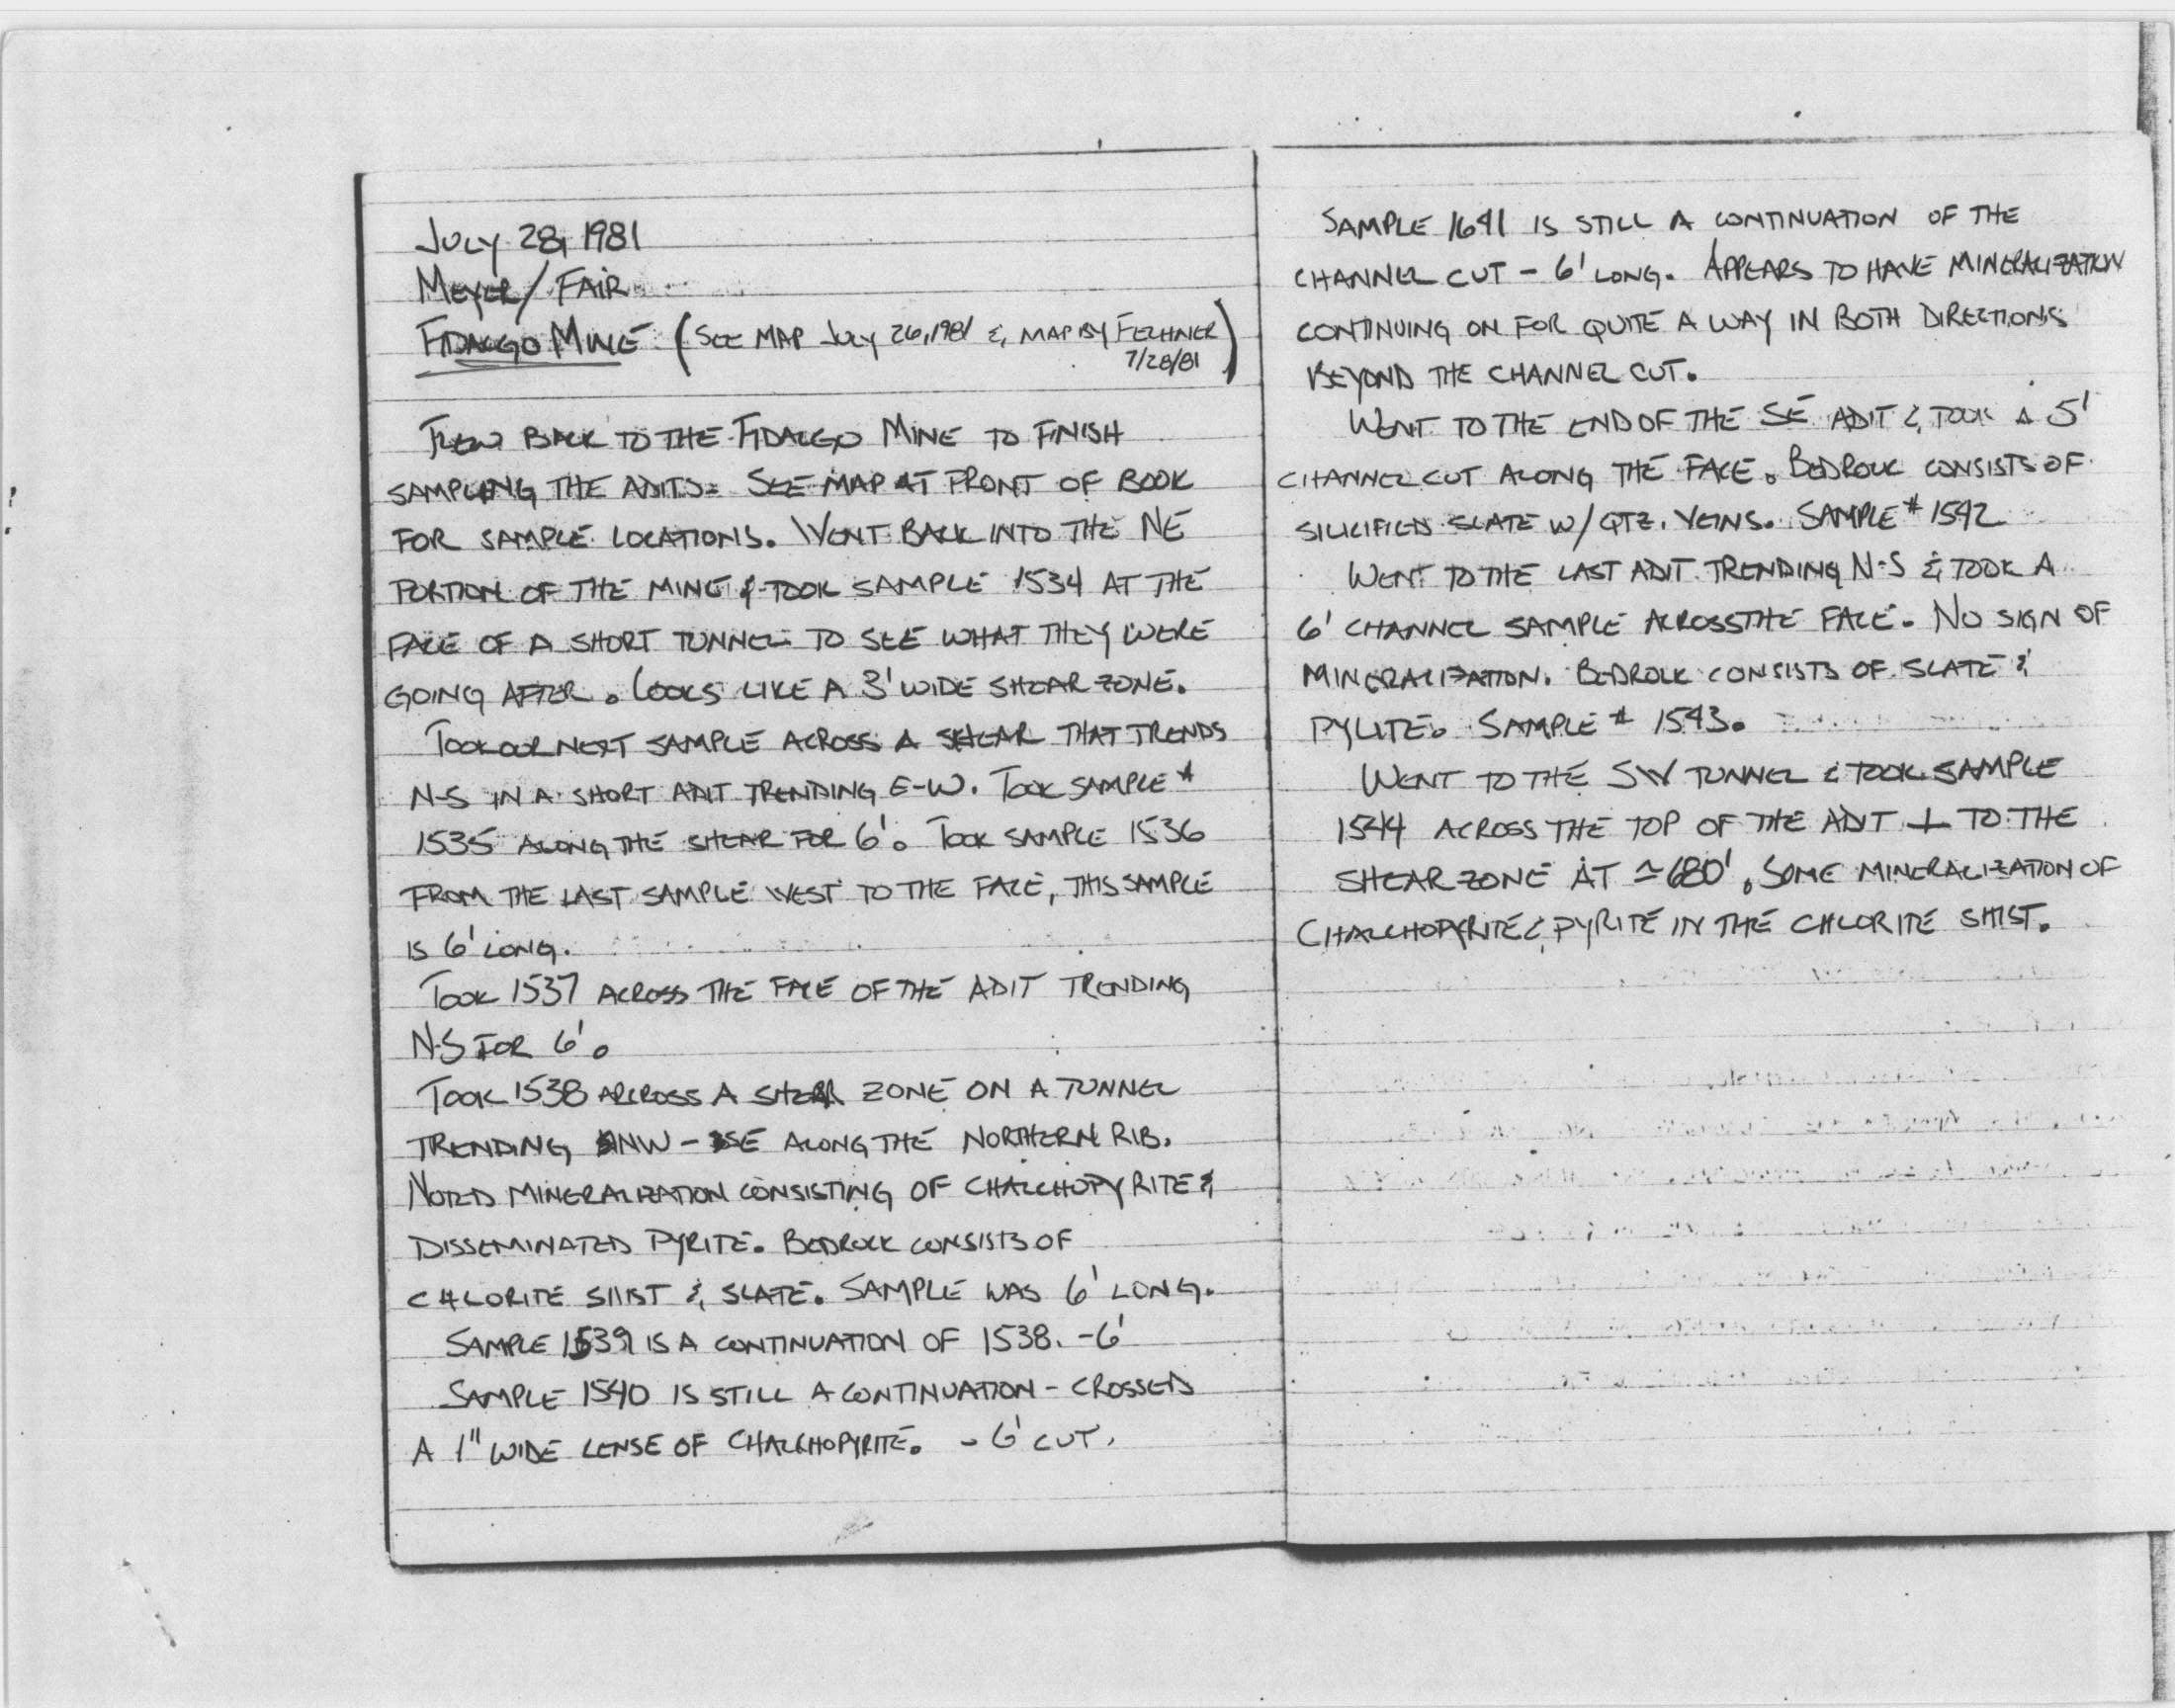 July 28, 1981
Meyer/Fair
Fidalgo Mine (See map July 26, 1981 & map by Fechner
7/28/81)
Flew back to the Fidalgo Mine to finish
sampling the adits. See map at front of book
for sample locations. Went back into the NE
portion of the mine & took sample 1534 at the
face of a short tunnel to see what they were
going after. Looks like a 3' wide shear zone.
Took our next sample across a shear that trends
N-S in a short adit trending E-W. Took sample #
1535 along the shear for 6'. Took sample 1536
from the last sample west to the face, this sample
is 6' long.
Took 1537 across the face of the adit trending
N-S for 6'.
Took 1538 arcross a shear zone on a tunnel
trending NW - SE along the northern rib.
Noted mineralization consisting of chalchopyrite &
disseminated pyrite. Bedrock consists of
chlorite shist & slate. Sample was 6' long.
Sample 1539 is a continuation of 1538. - 6'
Sample 1540 is still a continuation - crossed
a 1" wide lense of chalchopyrite. - 6' cut.
Sample 1641 is still a continuation of the
channel cut - 6' long. Appears to have mineralization
continuing on for quite a way in both directions
beyond the channel cut.
Went to the end of the SE adit & took a 5'
channel cut along the face. Bedrock consists of
silicified slate w/ qtz. veins. Sample # 1542
Went to the last adit trending N-S & took a
6' channel sample across the face. No sign of
mineralization. Bedrock consists of slate &
pylite. Sample # 1543.
Went to the SW tunnel & took sample
1544 across the top of the adit ⊥ to the
shear zone at ≃ 680'. Some mineralization of
chalchopyrite & pyrite in the chlorite shist.